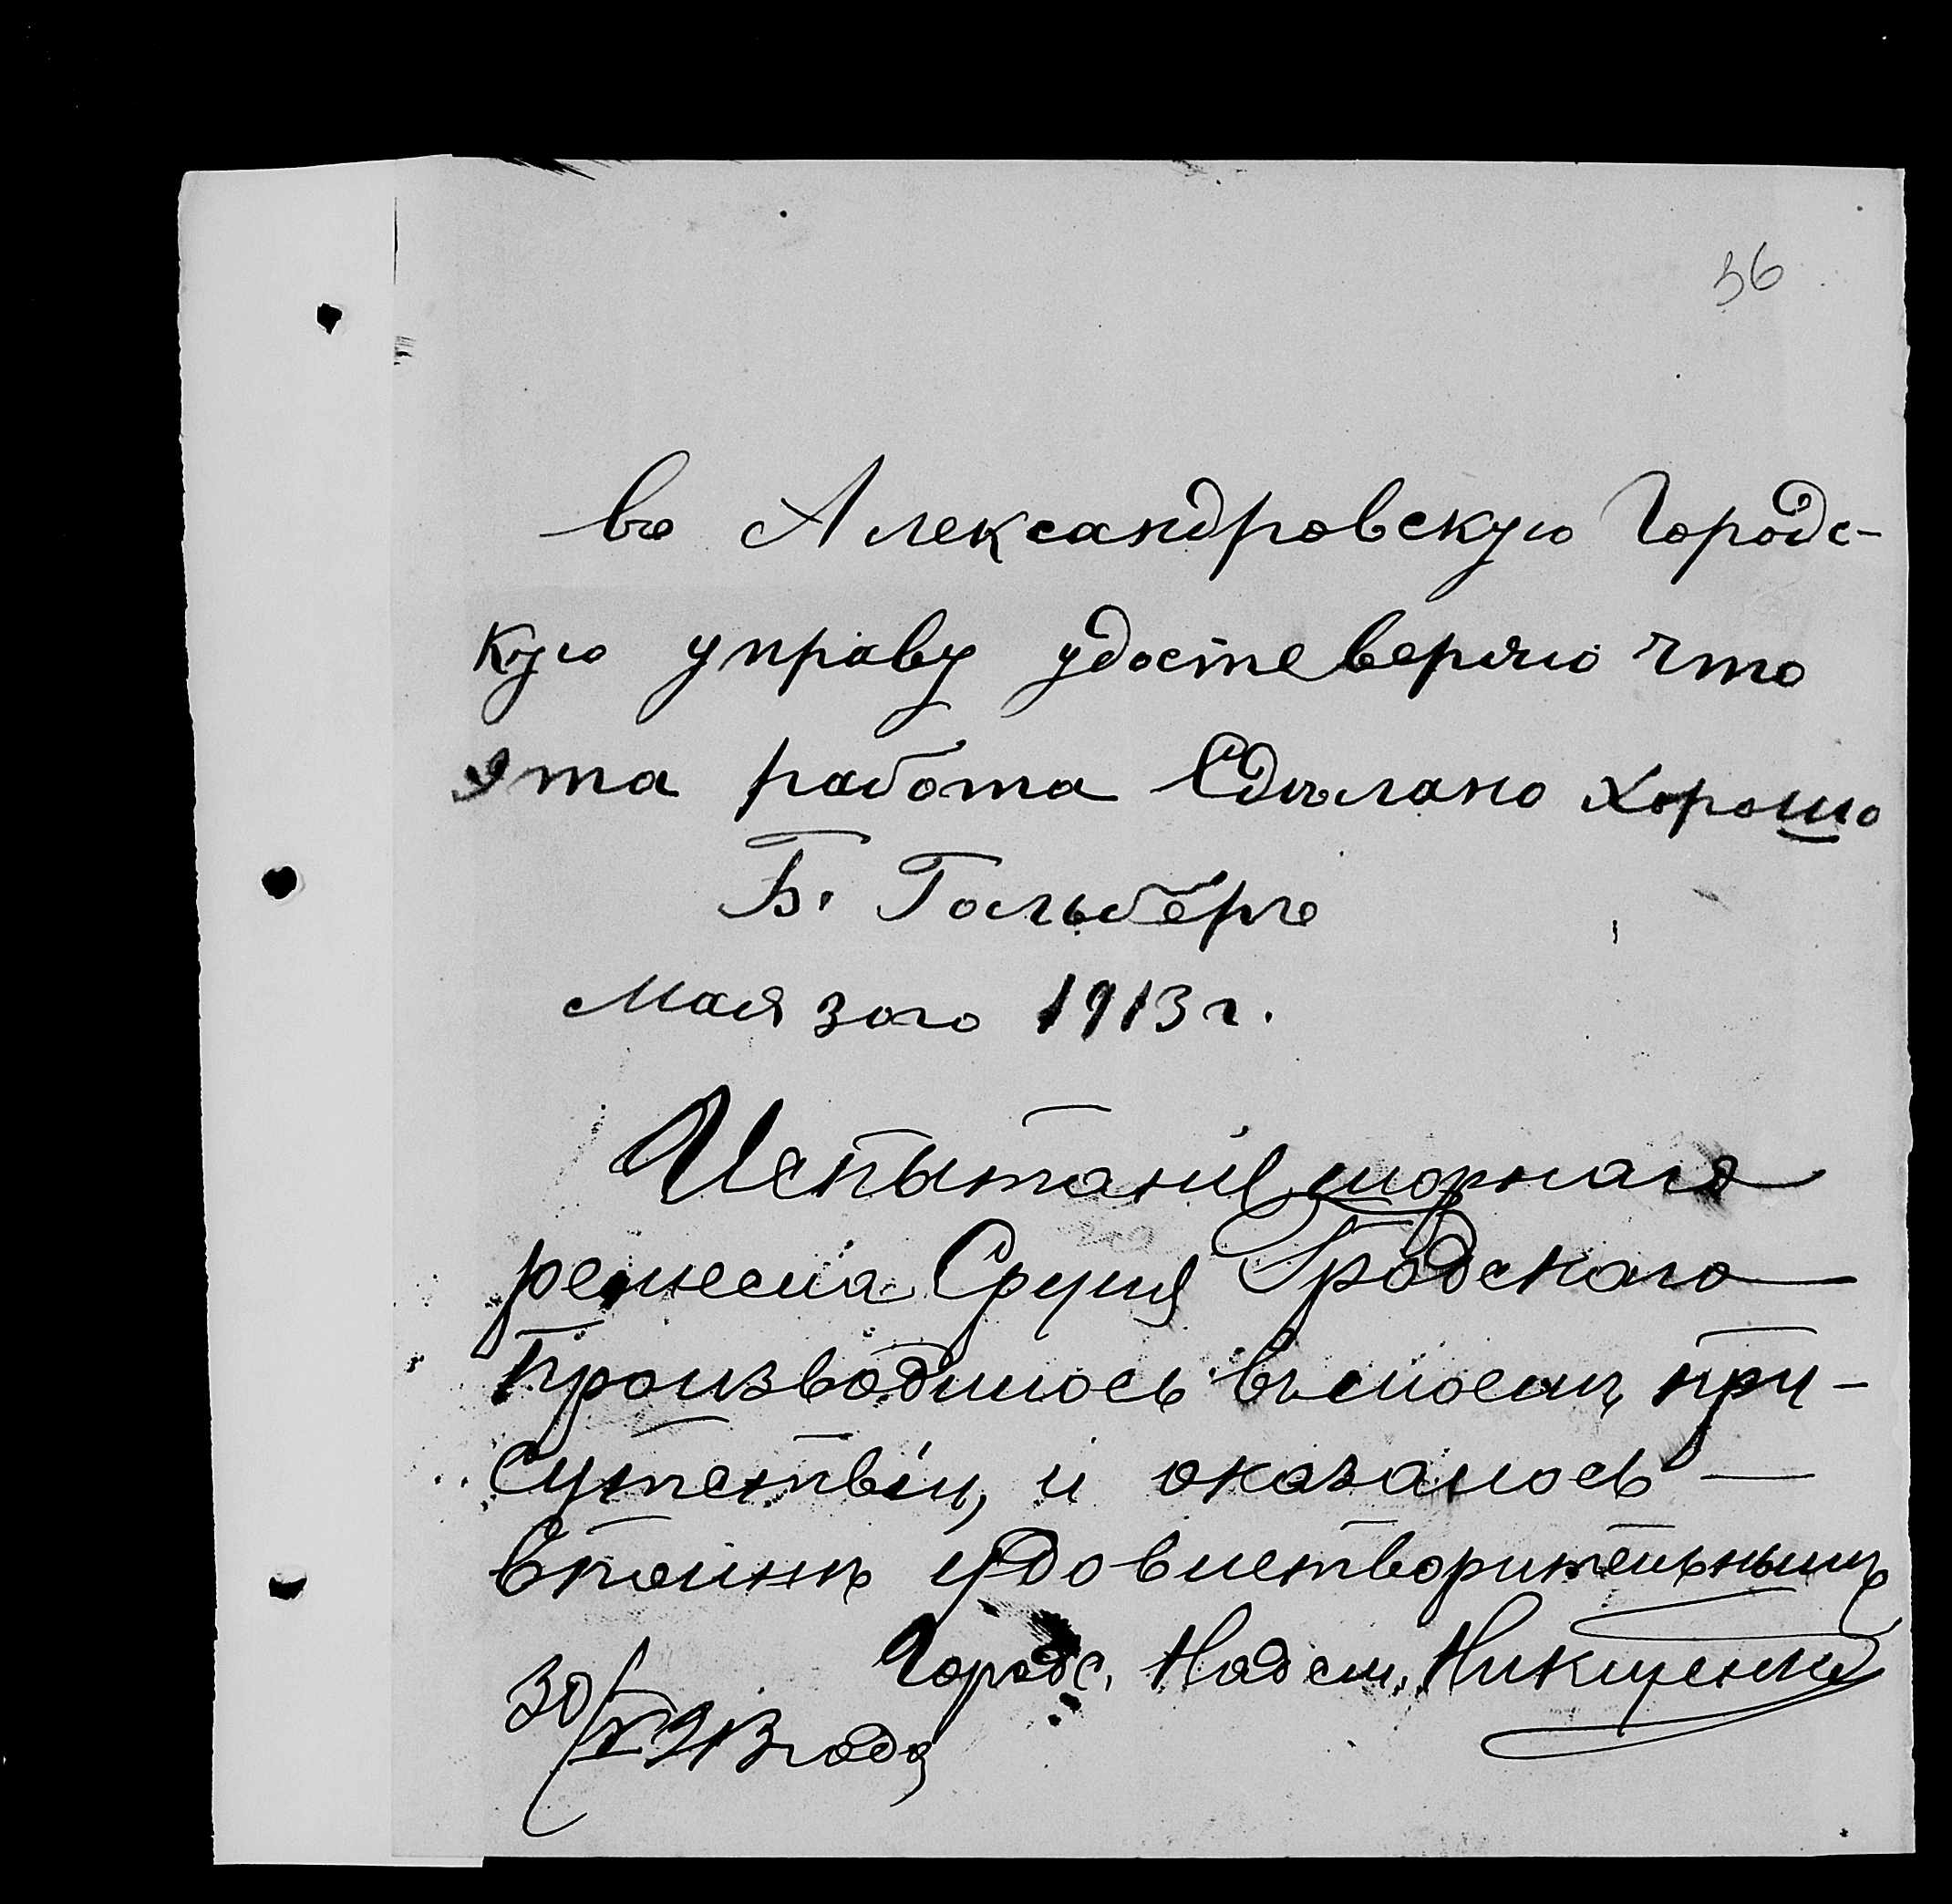 56
въ Александровскую Городс-
кую управу удостеверяю что
эта работа Сдѣлано хорошо
Б. Гольбергъ
Мая 30го 1913 г.
Испытаніе шорнаго
ремесла Сруля Гродскаго
Производилось въ моемъ при-
сутствіи, и оказалось —
Вполнѣ удовлетворительнымъ
Городс. Надсм. Никитенко
30/V 913 года